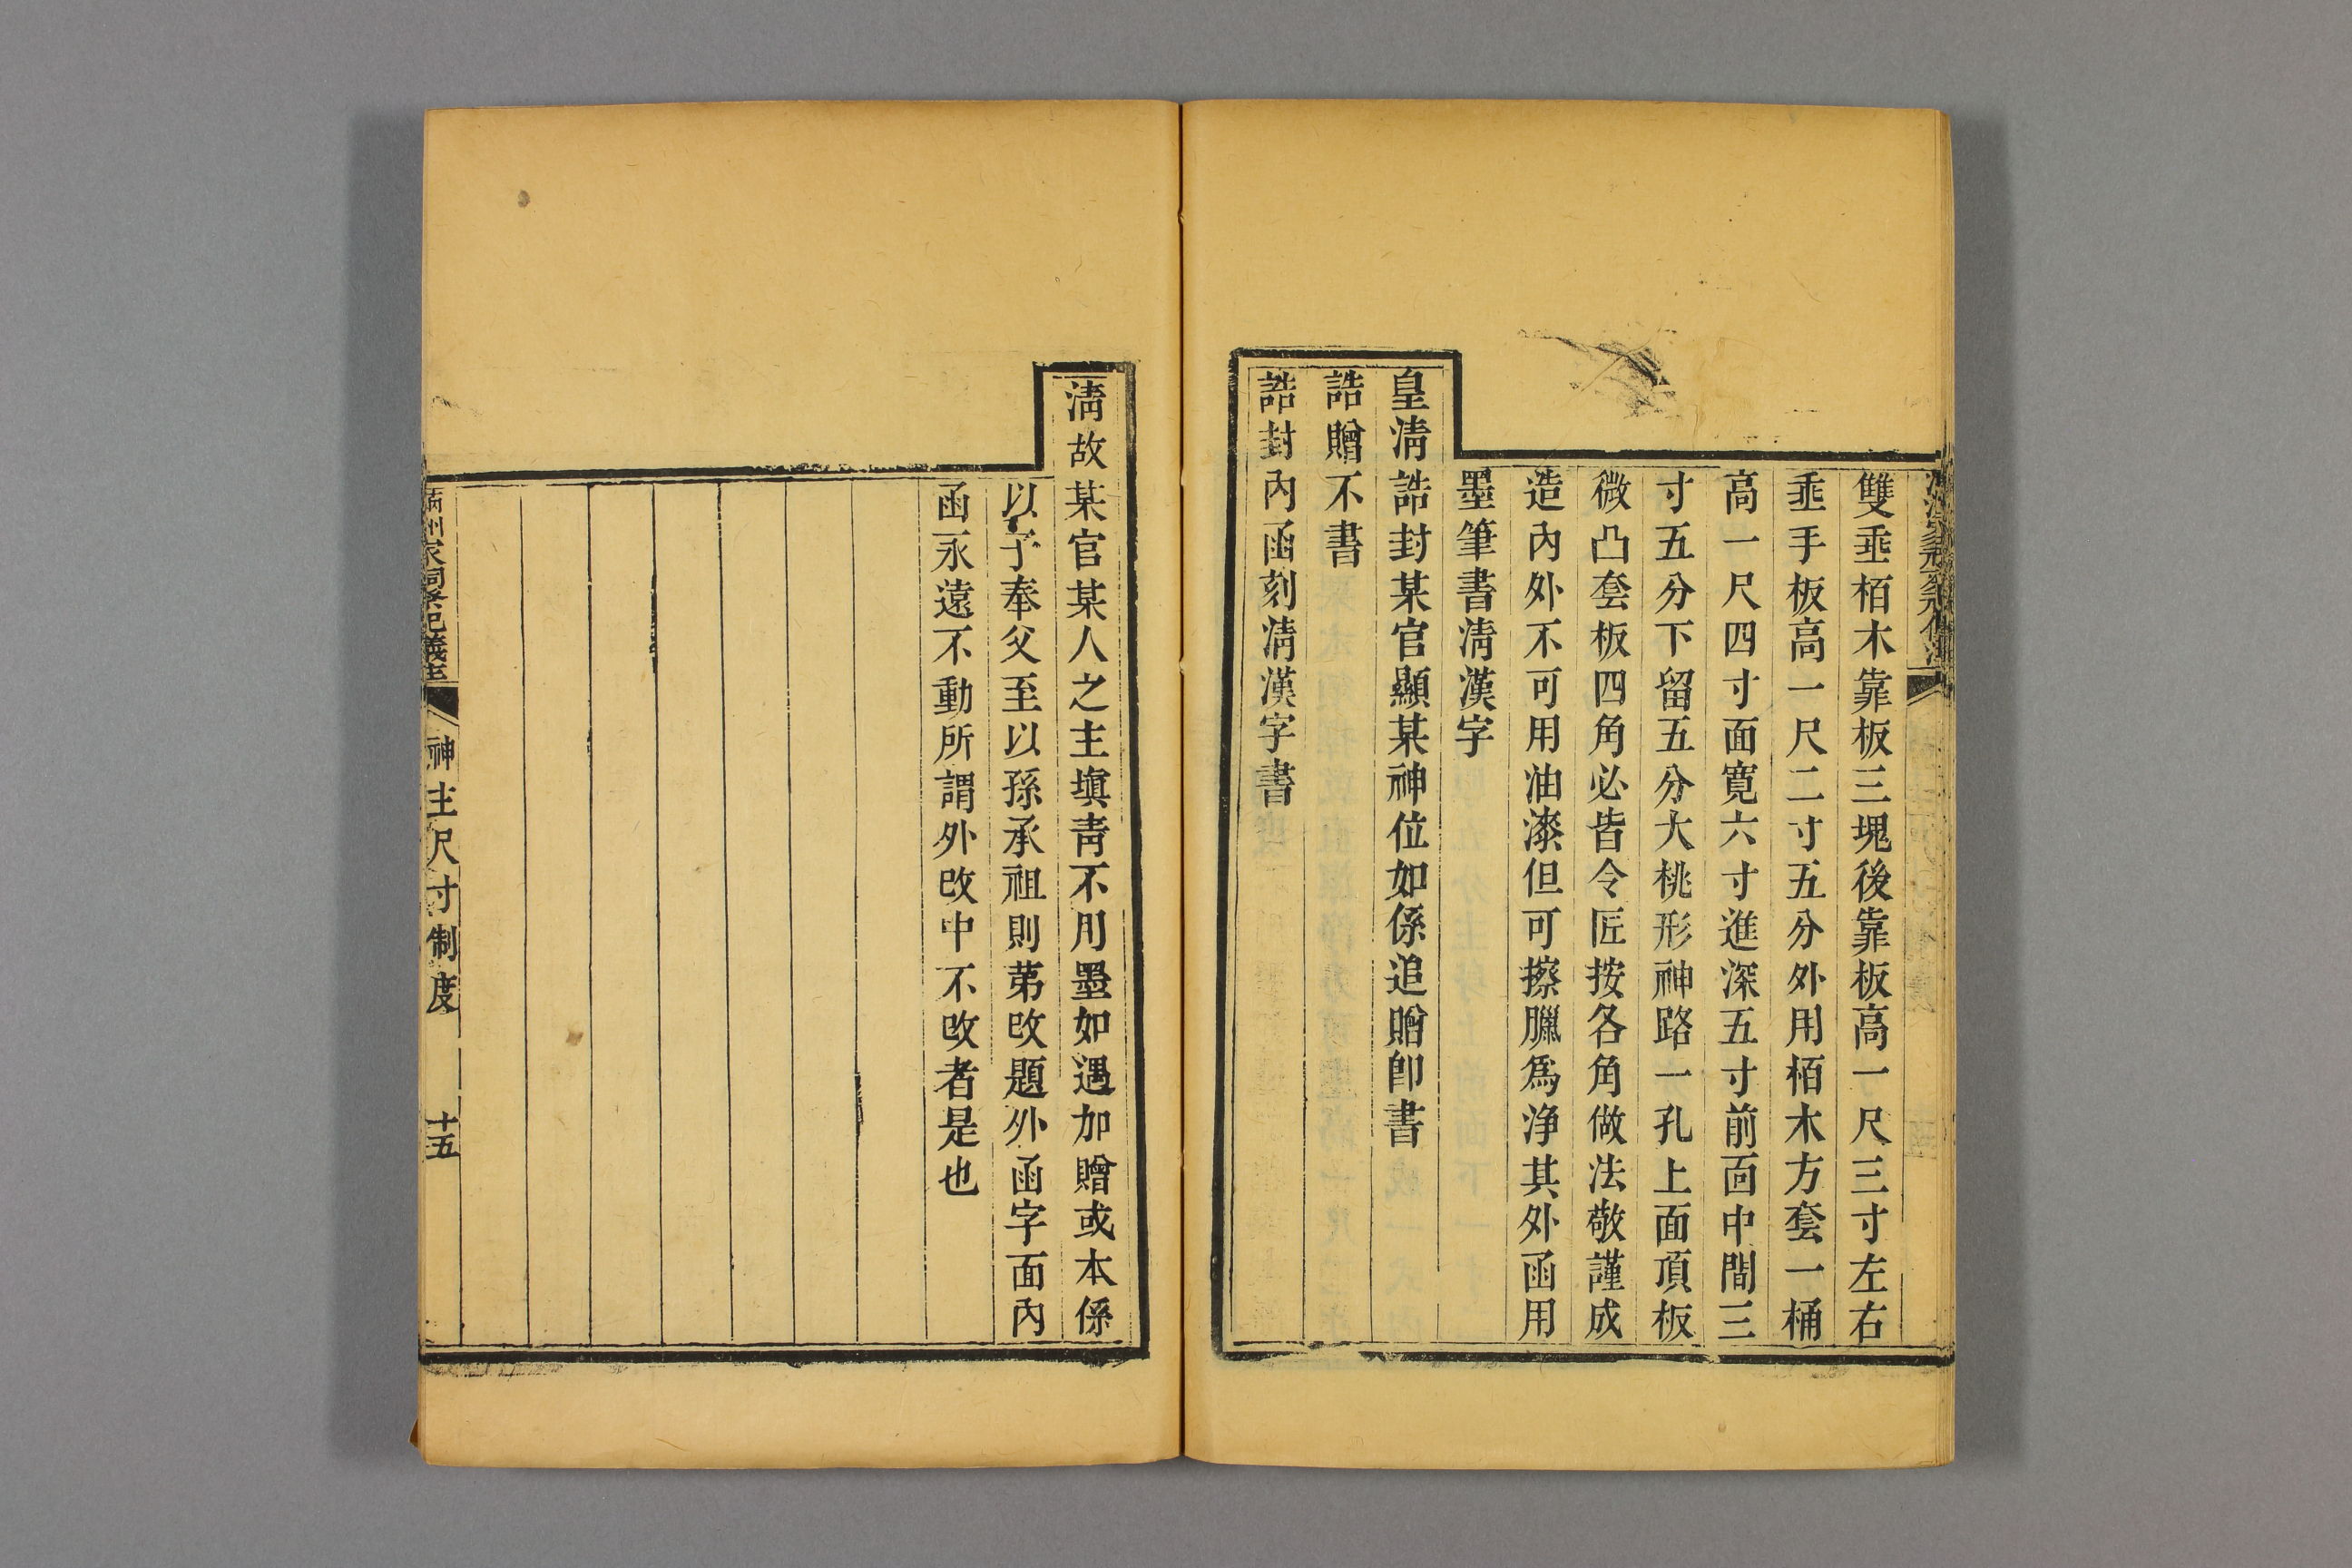 雙垂栢木靠板三塊後靠板高一尺三寸左右
垂手板高一尺二寸五分外用栢木方套一桶
高一尺四寸面寬六寸進深五寸前面中間三
寸五分下留五分大桃形神路一孔上面頂板
微凸套板四角必皆令匠按各角做法敬謹成
造內外不可用油漆但可擦臘爲净其外函用
墨筆書清漢字
皇清誥封某官顯某神位如係追贈卽書
誥贈不書
誥封內函刻清漢字書
清故某官某人之主塡靑不用墨如遇加贈或本係
以子奉父至以孫承祖則苐改題外函字面內
函永遠不動所謂外改中不改者是也
滿洲家祠祭祀義注
神主尺寸制度
十五